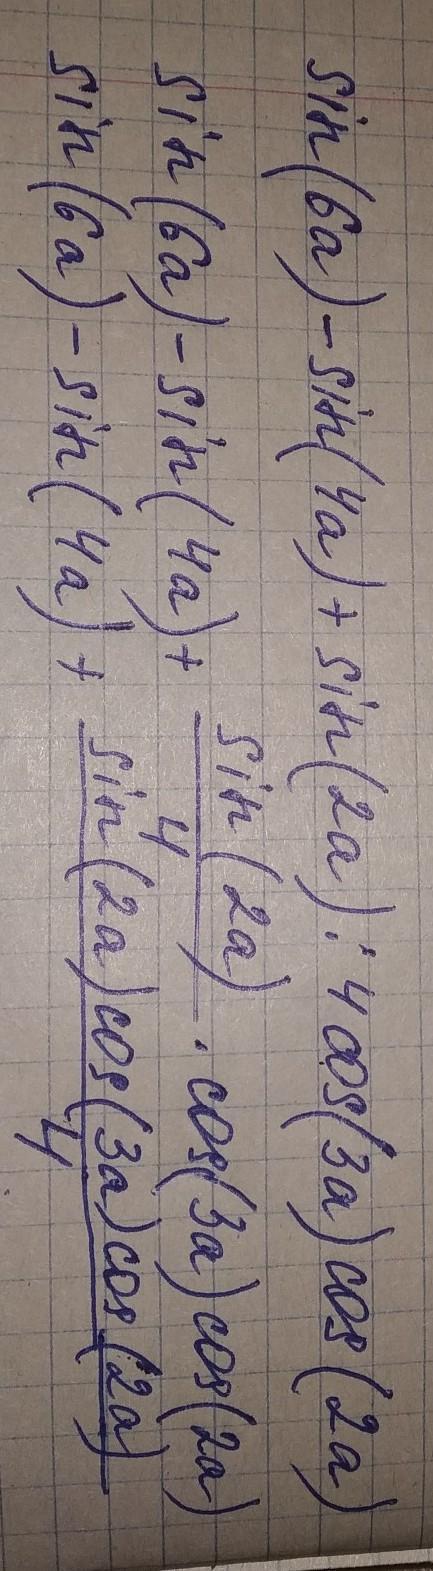 sin(6a)-sin(4a)+sin(2a):4cos(3a)cos(2a)
sin(6a)-sin(4a)+ sin(2a)/4 · cos(3a)cos(2a)
sin(6a)-sin(4a)+ sin(2a)cos(3a)cos(2a)/4